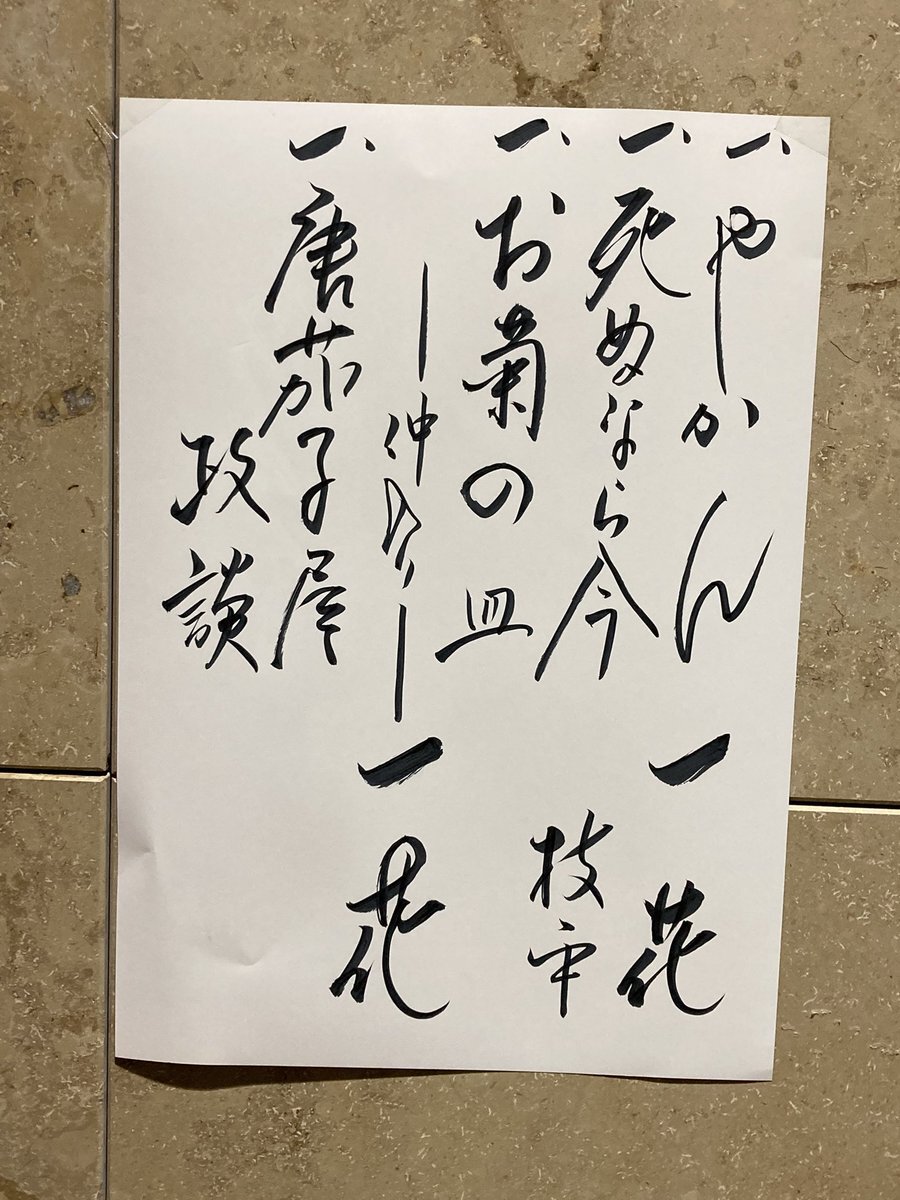 一、やかん
一、死ぬなら今
一花
一、お菊の皿
枝平
―仲入り―
一、唐茄子屋
政談
一花